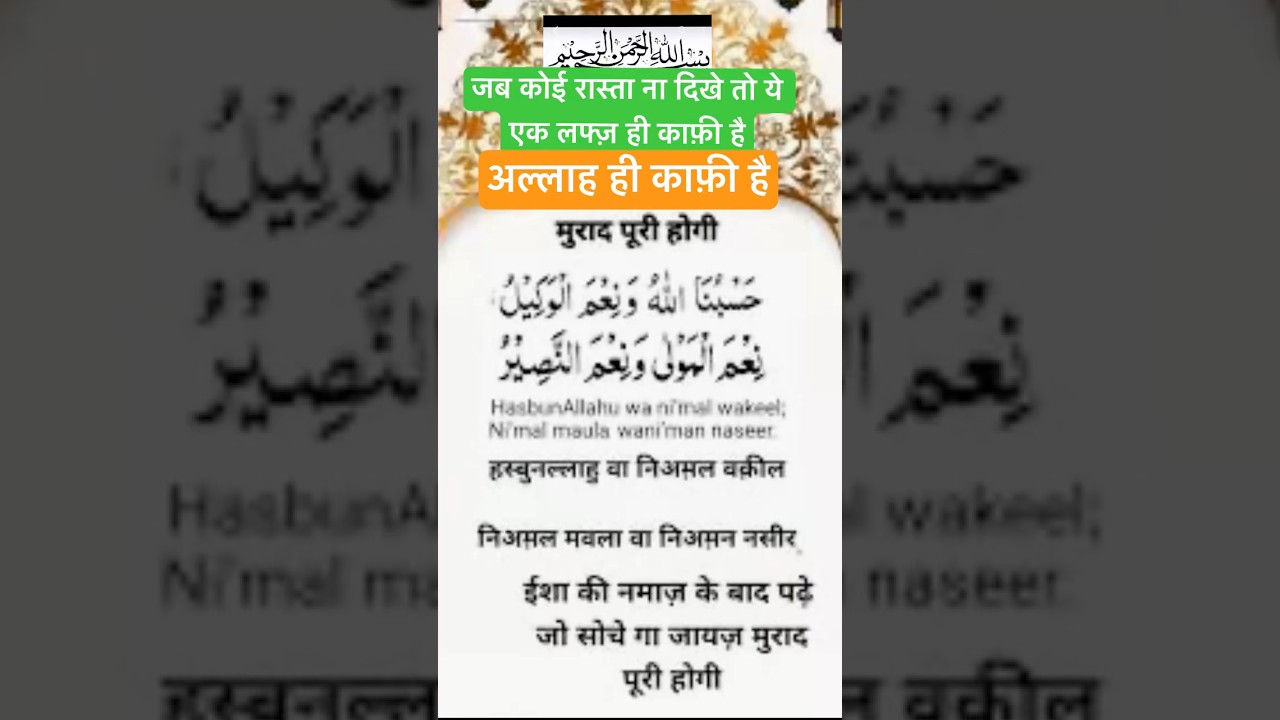 بسم الله الرحمن الرحيم
जब कोई रास्ता ना दिखे तो ये
एक लफ्ज़ ही काफ़ी है
अल्लाह ही काफ़ी है
मुराद पूरी होगी
حَسْبُنَا اللّٰهُ وَنِعْمَ الْوَكِيْلُ
نِعْمَ الْمَوْلٰى وَنِعْمَ النَّصِيْرُ
HasbunAllahu wa ni'mal wakeel;
Ni'mal maula wani'man naseer.
हस्बुनल्लाहु वा निअ़मल वक़ील
निअ़मल मवला वा निअ़मन नसीर
ईशा की नमाज़ के बाद पढ़े
जो सोचे गा जायज़ मुराद
पूरी होगी